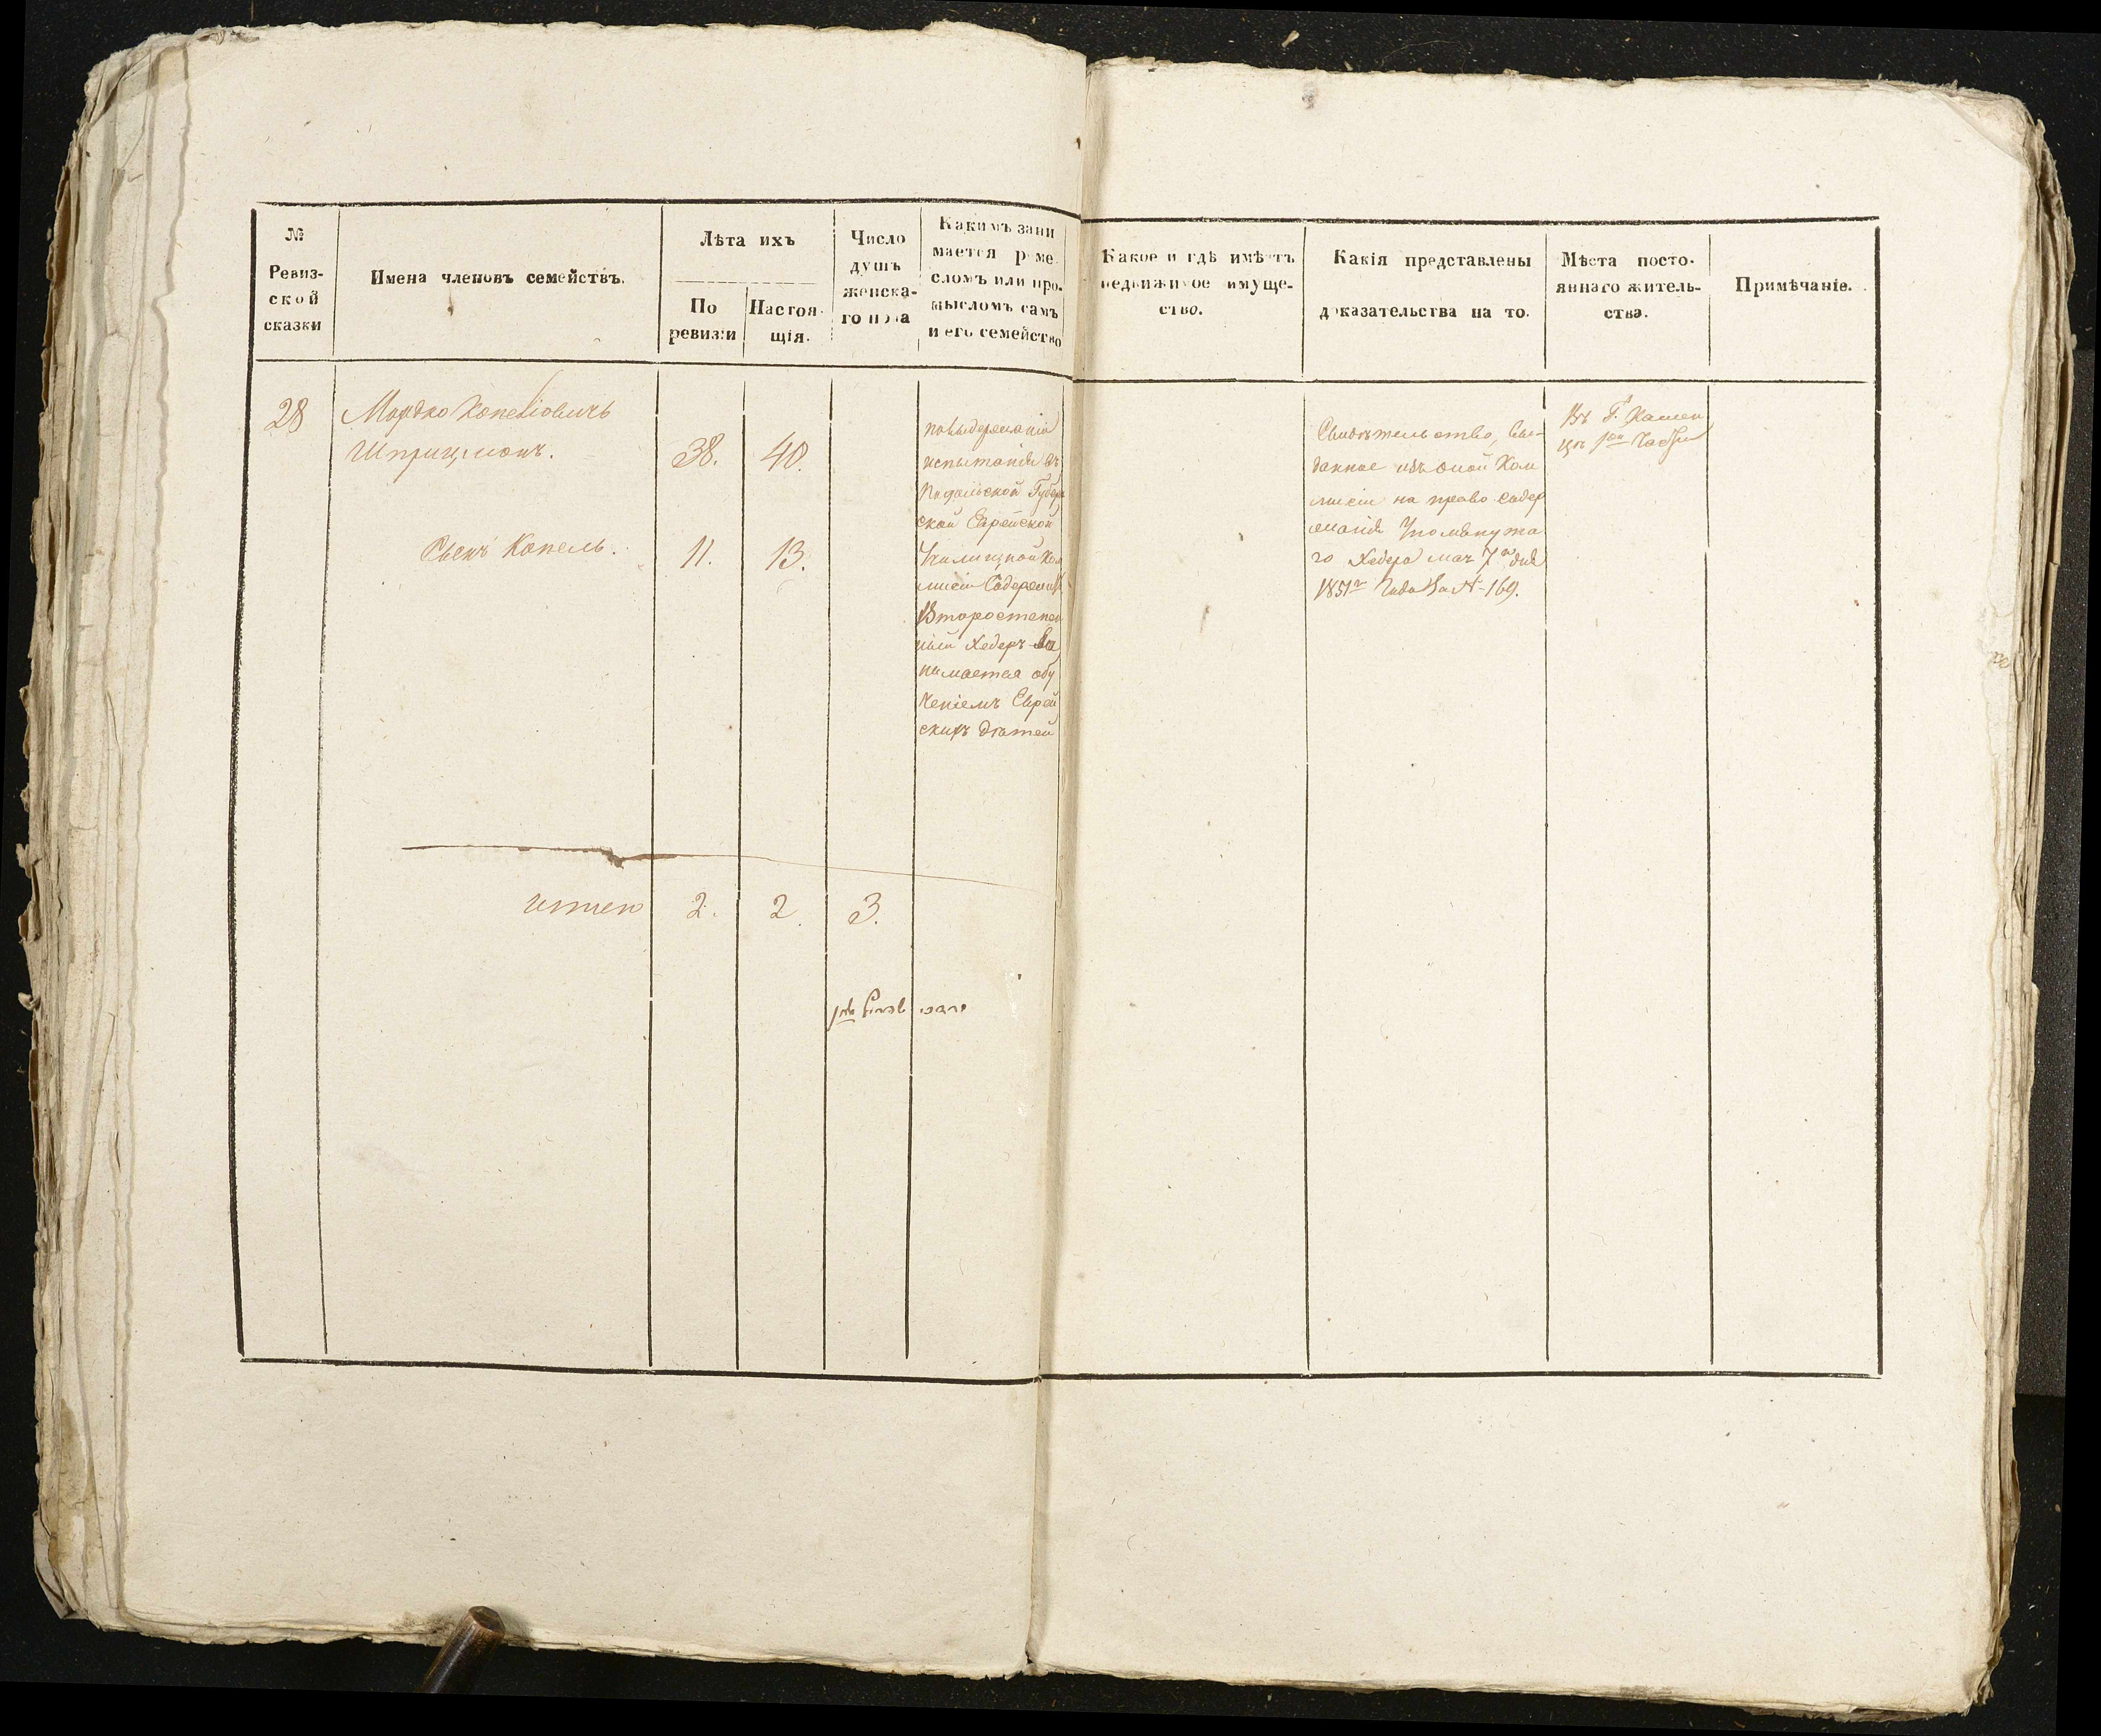 №
Ревиз-
ской
сказки
Имена членовъ семействъ.
Лѣта ихъ
По
ревизіи
Настоя-
щія.
Число
душъ
женска-
го пола
Какимъ зани
мается реме-
сломъ или про-
мысломъ самъ
и его семейство
Какое и гдѣ имѣетъ
недвижимое имуще-
ство.
Какія представлены
доказательства на то.
Мѣста посто-
яннаго житель-
ства.
Примѣчаніе.
28
Мордко Копеліовичъ
Шприцманъ.
38.
40.
Сынъ Копель.
11.
13.
по выдержаніи
испытанія въ
Подольской Губерн
ской Еврейской
Училищной Ком
мисіи Содержитъ
Второстепен
ный Хедеръ За
нимается обу
ченіемъ Еврей
скихъ дѣтей
Свидѣтельство, вы-
данное изъ оной Ком
мисіи на право содер
жанія Упомянута
го Хедера мая 7го дня
1851го Года За № 169.
Въ Г. Камен
цѣ 1ой Части
итого
2.
2.
3.